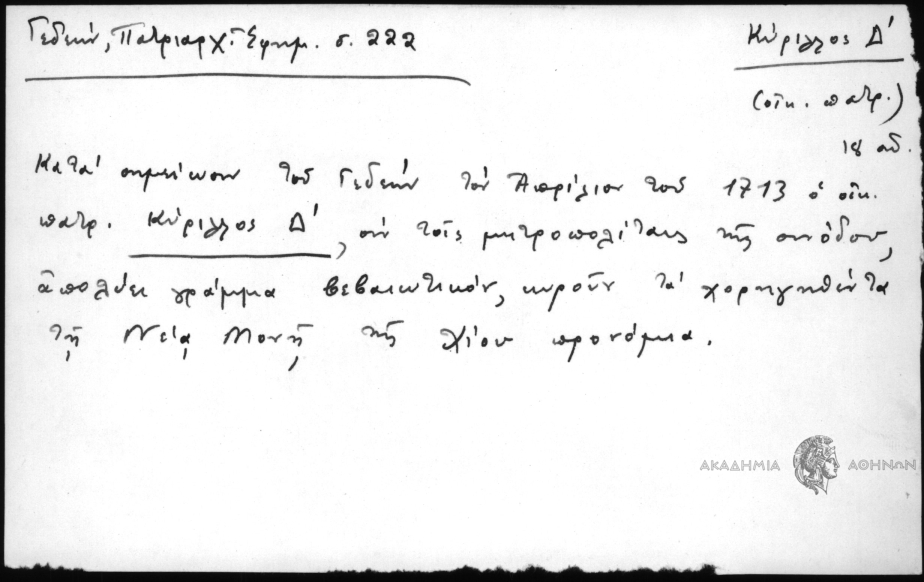 Γεδεών, Πατριαρχ. Εφημ. σ. 222
Κύριλλος Δ΄
(οἰκ. πατρ.)
18 αἰ.
Κατά σημείωσιν τοῦ Γεδεών τόν Ἀπρίλιον τοῦ 1713 ὁ οἰκ.
πατρ. Κύριλλος Δ΄, σύν τοῖς μητροπολίταις τῆς συνόδου,
ἀπολύει γράμμα βεβαιωτικόν, κυροῦν τά χορηγηθέντα
τῇ Νέᾳ Μονῇ τῆς Χίου προνόμια.
ΑΚΑΔΗΜΙΑ ΑΘΗΝΩΝ